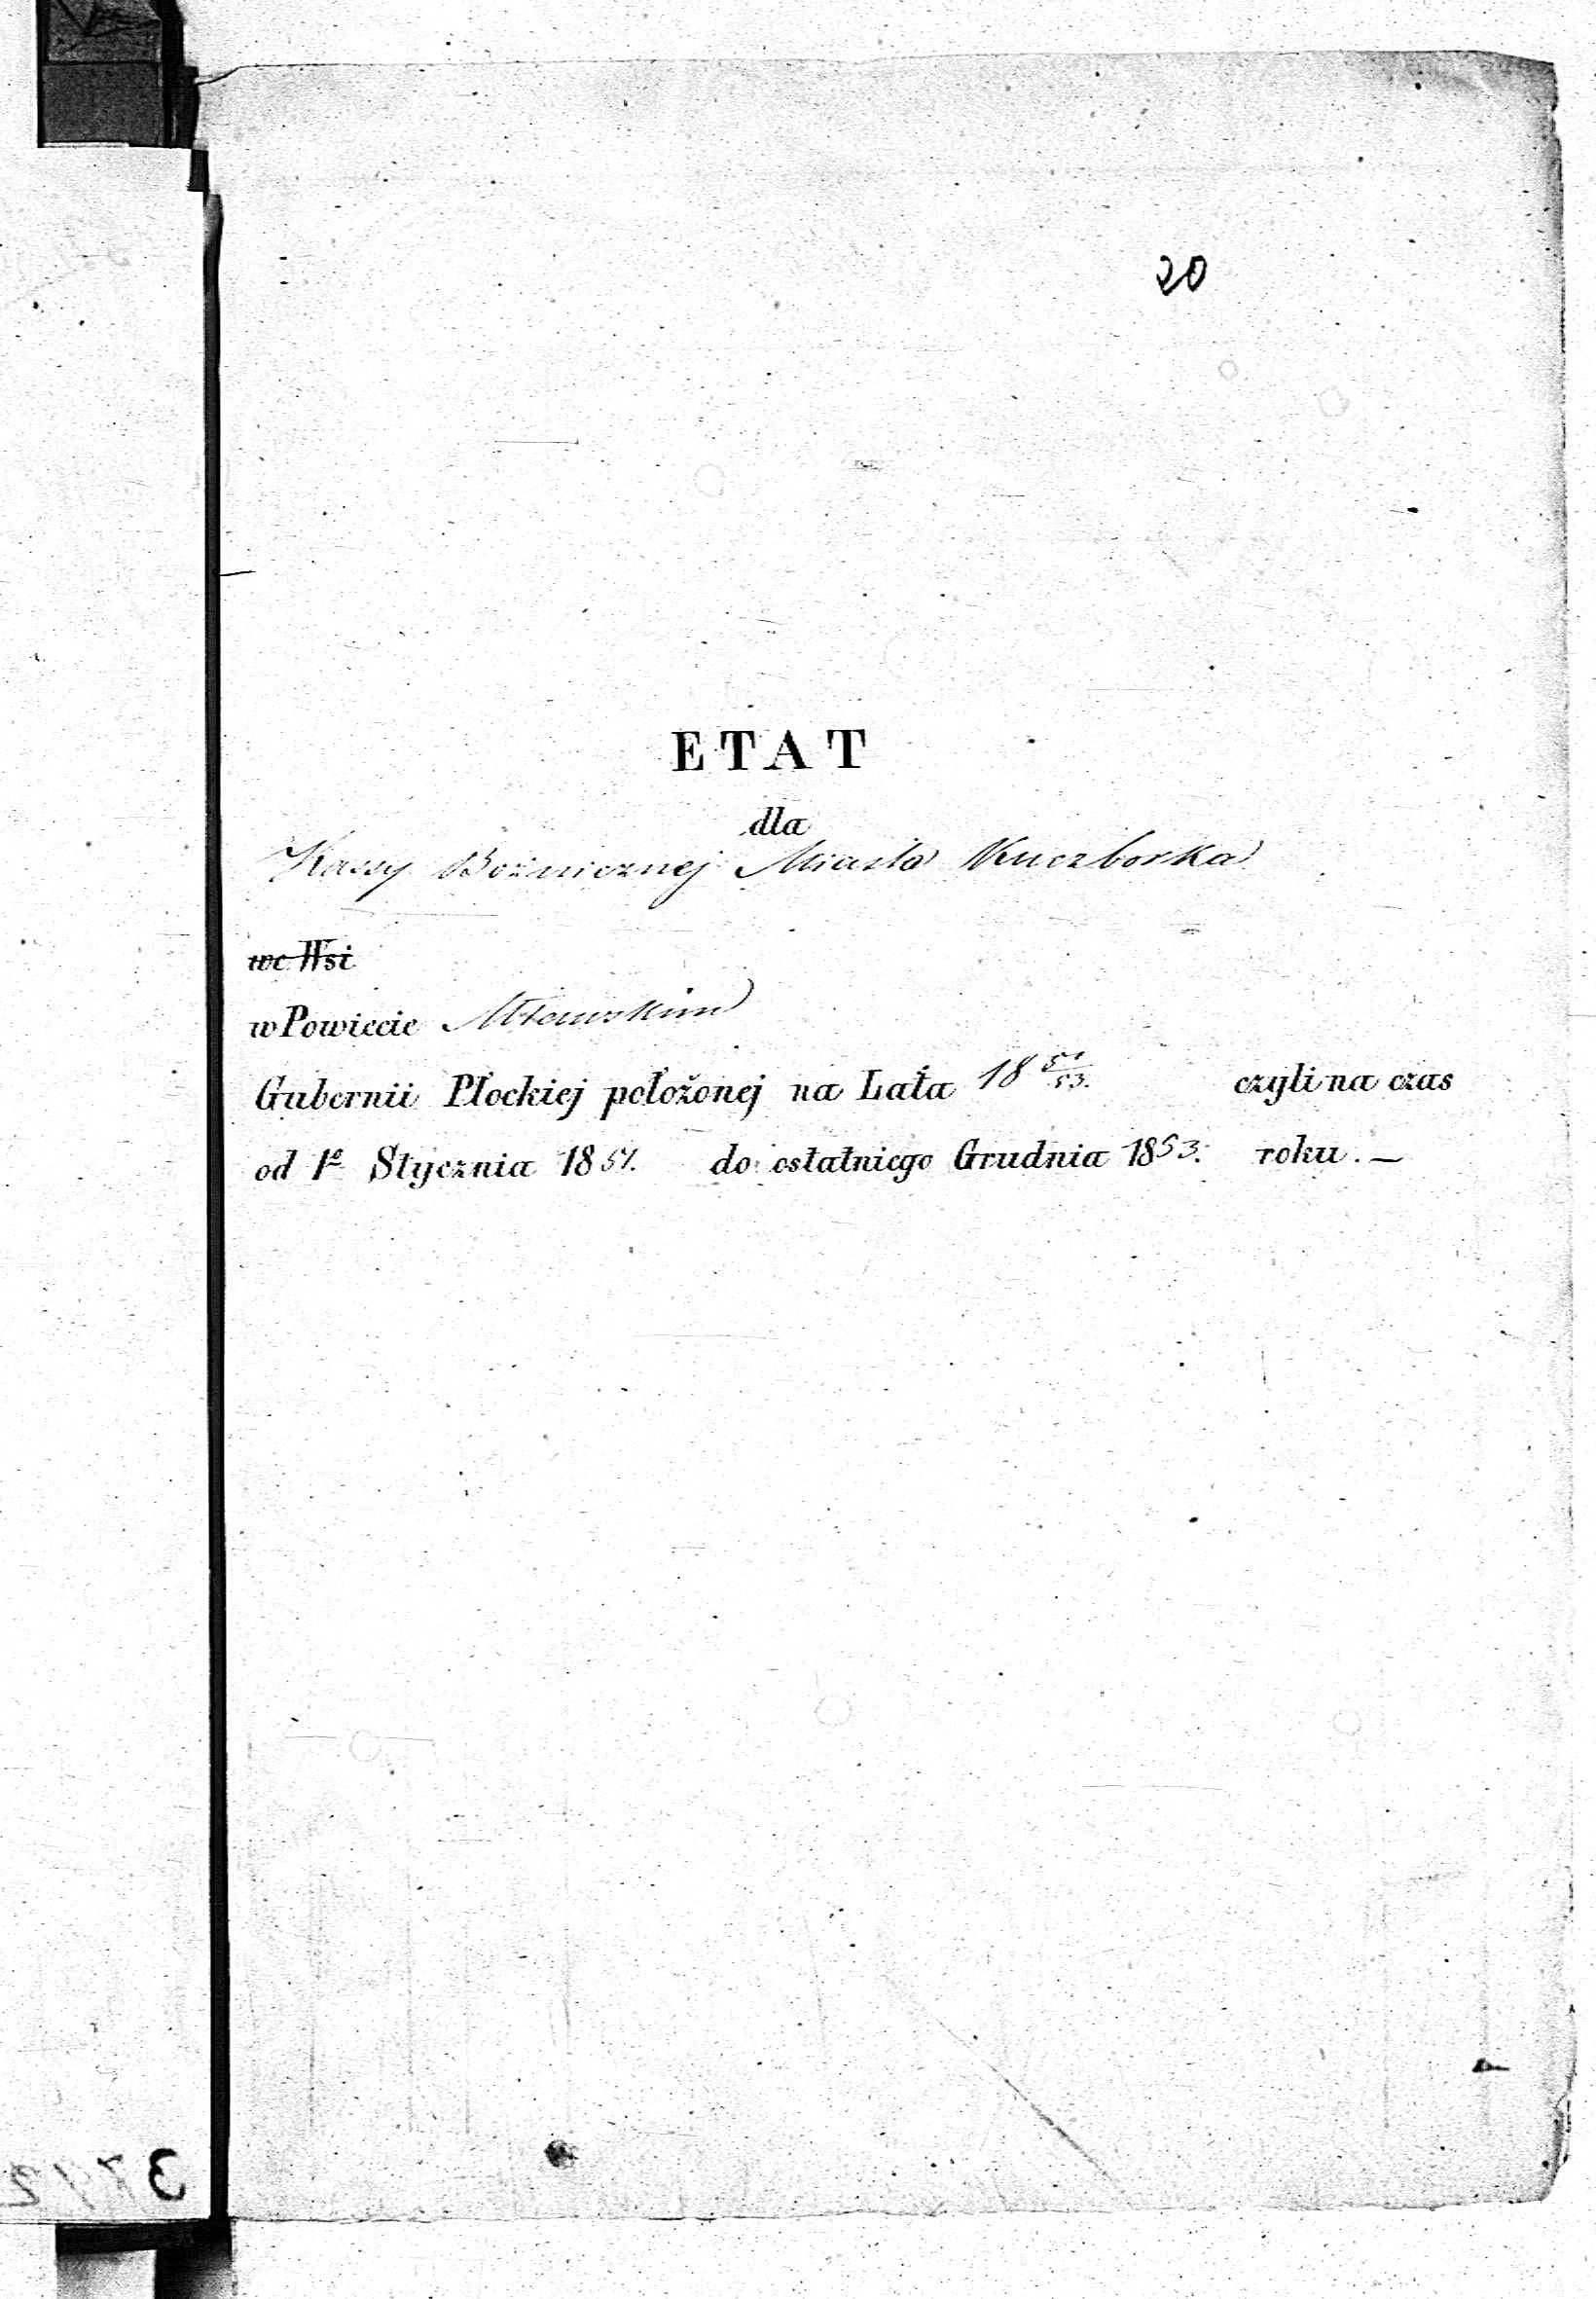 20
ETAT
dla
Kassy Bóżnicznej Miasta Kuczborka
we Wsi
w Powiecie Mławskim
Gubernii Płockiej położonej na Lata 18 51/53. czyli na czas
od 1º Stycznia 1851. do ostatniego Grudnia 1853. roku. —